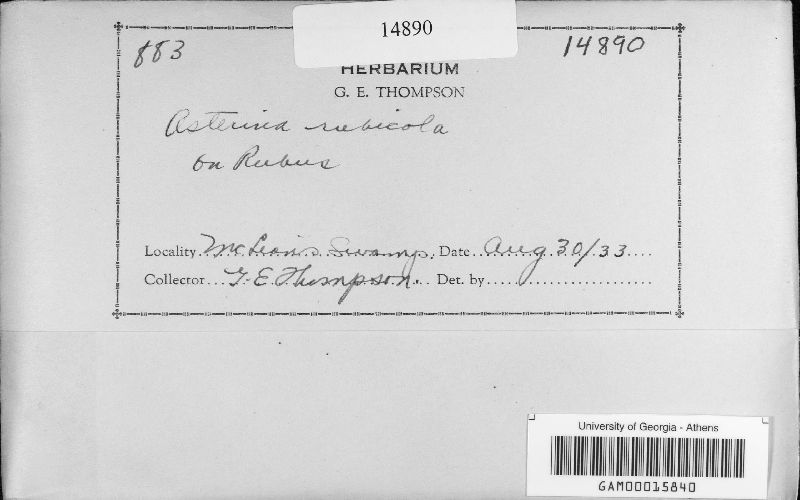 14890
883
14890
HERBARIUM
G. E. THOMPSON
Asterina rubicola
on Rubus
Locality McLean's Swamp. Date Aug 30/33
Collector G. E. Thompson. Det. by
University of Georgia - Athens
GAM00015840